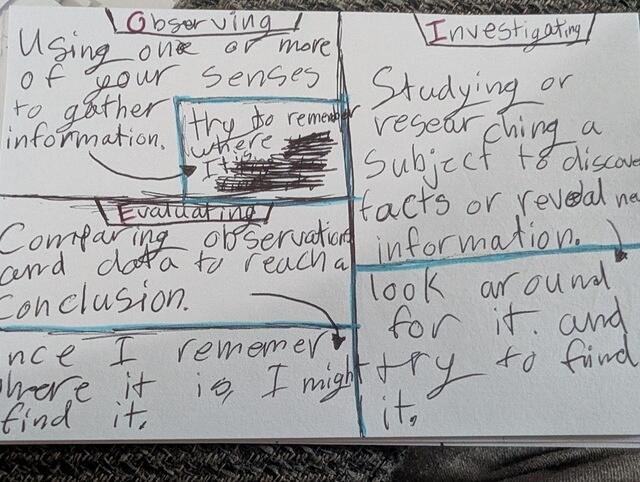 Observing
Using one or more
of your senses
to gather
information.
try to remember
where
It is
Evaluating
Comparing observations
and data to reach a
Conclusion.
nce I rememer
where it is, I might
find it.
Investigating
Studying or
researching a
Subject to discove
facts or reveal ne
information.
look around
for it. and
try to find
it.